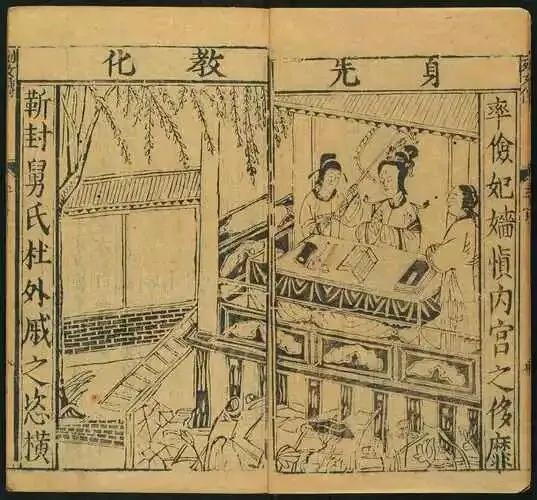 身先教化
率儉妃嬙慎內宮之侈靡
靳封舅氏杜外戚之恣橫